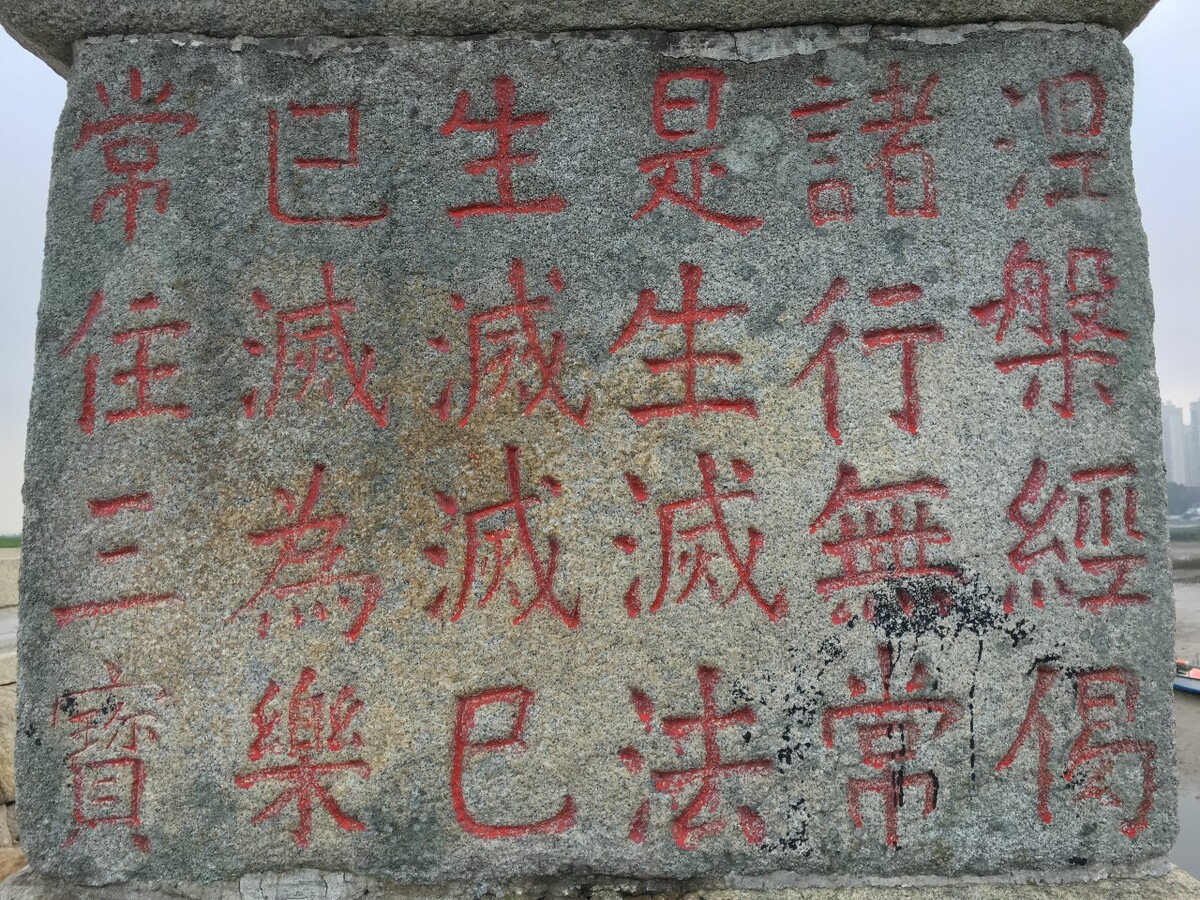 涅槃經偈
諸行無常
是生滅法
生滅滅已
已滅為樂
常住三寳